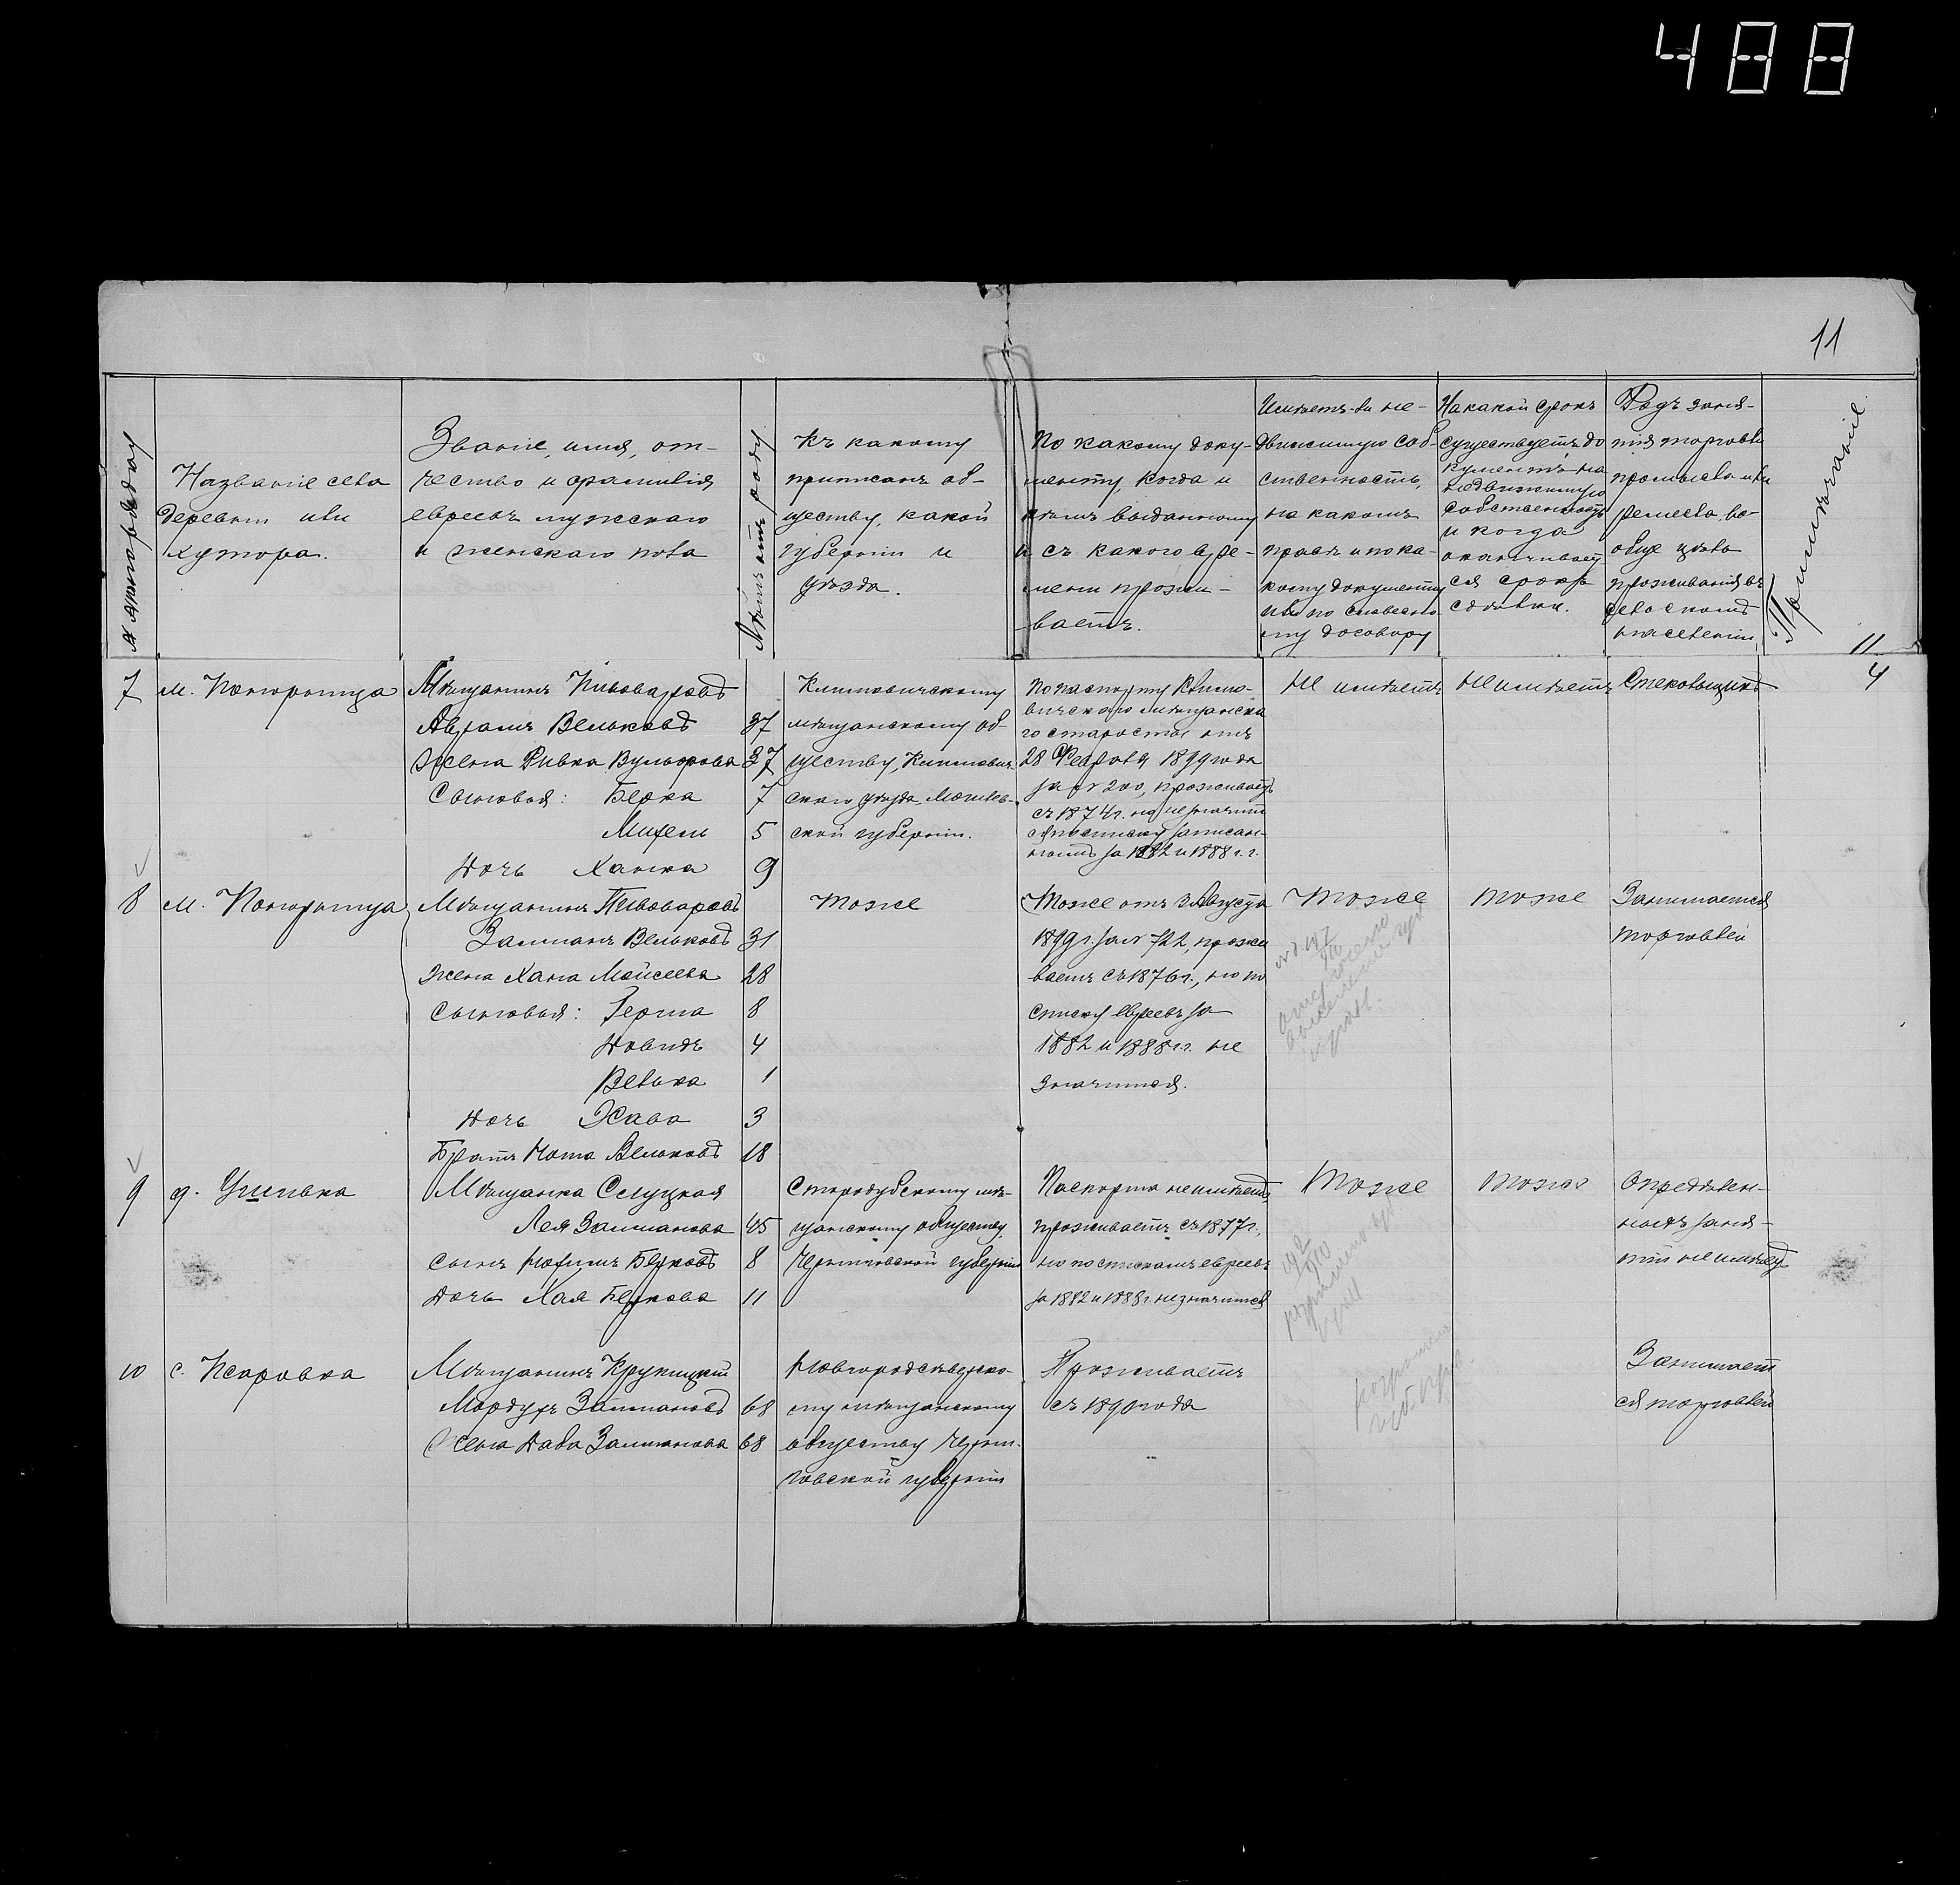 488
11
№ по порядку
Названіе села
деревни или
хутора.
Званіе, имя, от-
чество и фамилія
евреевъ мужскаго
и женскаго пола
Лѣтъ отъ роду
Къ какому
приписанъ об-
ществу, какой
губерніи и
уѣзда.
По какому доку-
менту, когда и
кѣмъ выданному
и съ какого вре-
мени прожи-
ваетъ.
Имѣетъ-ли не-
движимую соб-
ственность,
на какомъ
правѣ и по ка-
кому документу
или по словесно-
му договору
На какой срокъ
существуетъ до
кументъ на
недвижимую
собственность
и когда
оканчивает
ся срокъ
сдѣлки.
Родъ заня-
тія торговли
промысла или
ремесла, во-
обще цѣль
проживанія въ
сельскомъ
населеніи
Примѣчаніе
11
4
7
м.
Мѣщанинъ Пивоваровъ
Аврамъ Вельковъ 37
Жена Ривка Вульфова 37
Сыновья: Берка 7
Михель 5
Дочь Ханка 9
Климовичскому
мѣщанскому об-
ществу, Климович-
скаго уѣзда Могилев-
ской губерніи.
По паспорту Климо-
вичскаго мѣщанска
го старосты отъ
28 Февраля 1899 года
за № 200, проживаетъ
съ 1874 г. но не значит
ся по списку записан-
нымъ за 1882 и 1888 г.г.
Не имѣетъ
Не имѣетъ
Стекольщикъ
8
м.
Мѣщанинъ Пивоваровъ
Залманъ Вельковъ 31
Жена Хана Моисеева 28
Сыновья: Герша 8
Давидъ 4
Велька 1
Дочь Хава 3
Братъ Нота Вельковъ 18
Тоже
Тоже отъ 3 Августа
1899 г. за № 722, прожи
ваетъ съ 1876 г., но по
списку евреевъ за
1882 и 1888 г.г. не
значится.
Тоже
Тоже
Занимается
торговлей
9
д.
Мѣщанка Слуцкая
Лея Залманова 45
Сынъ Нохимъ Берковъ 8
Дочь Хая Беркова 11
Стародубскому мѣ-
щанскому обществу,
Черниговской губерніи
Паспорта не имѣетъ,
проживаетъ съ 1877 г.
но по спискамъ евреевъ
за 1882 и 1888 г. не значится
Тоже
Тоже
Опредѣлен-
ныхъ заня-
тій не имѣетъ
10
с. Псаровка
Мѣщанинъ Крупицкій
Мордухъ Залмановъ 68
Жена Даба Залманова 68
Новгородсѣверско-
му мѣщанскому
обществу Черни-
говской губерніи
Проживаетъ
съ 1890 года
Занимает
ся торговлей